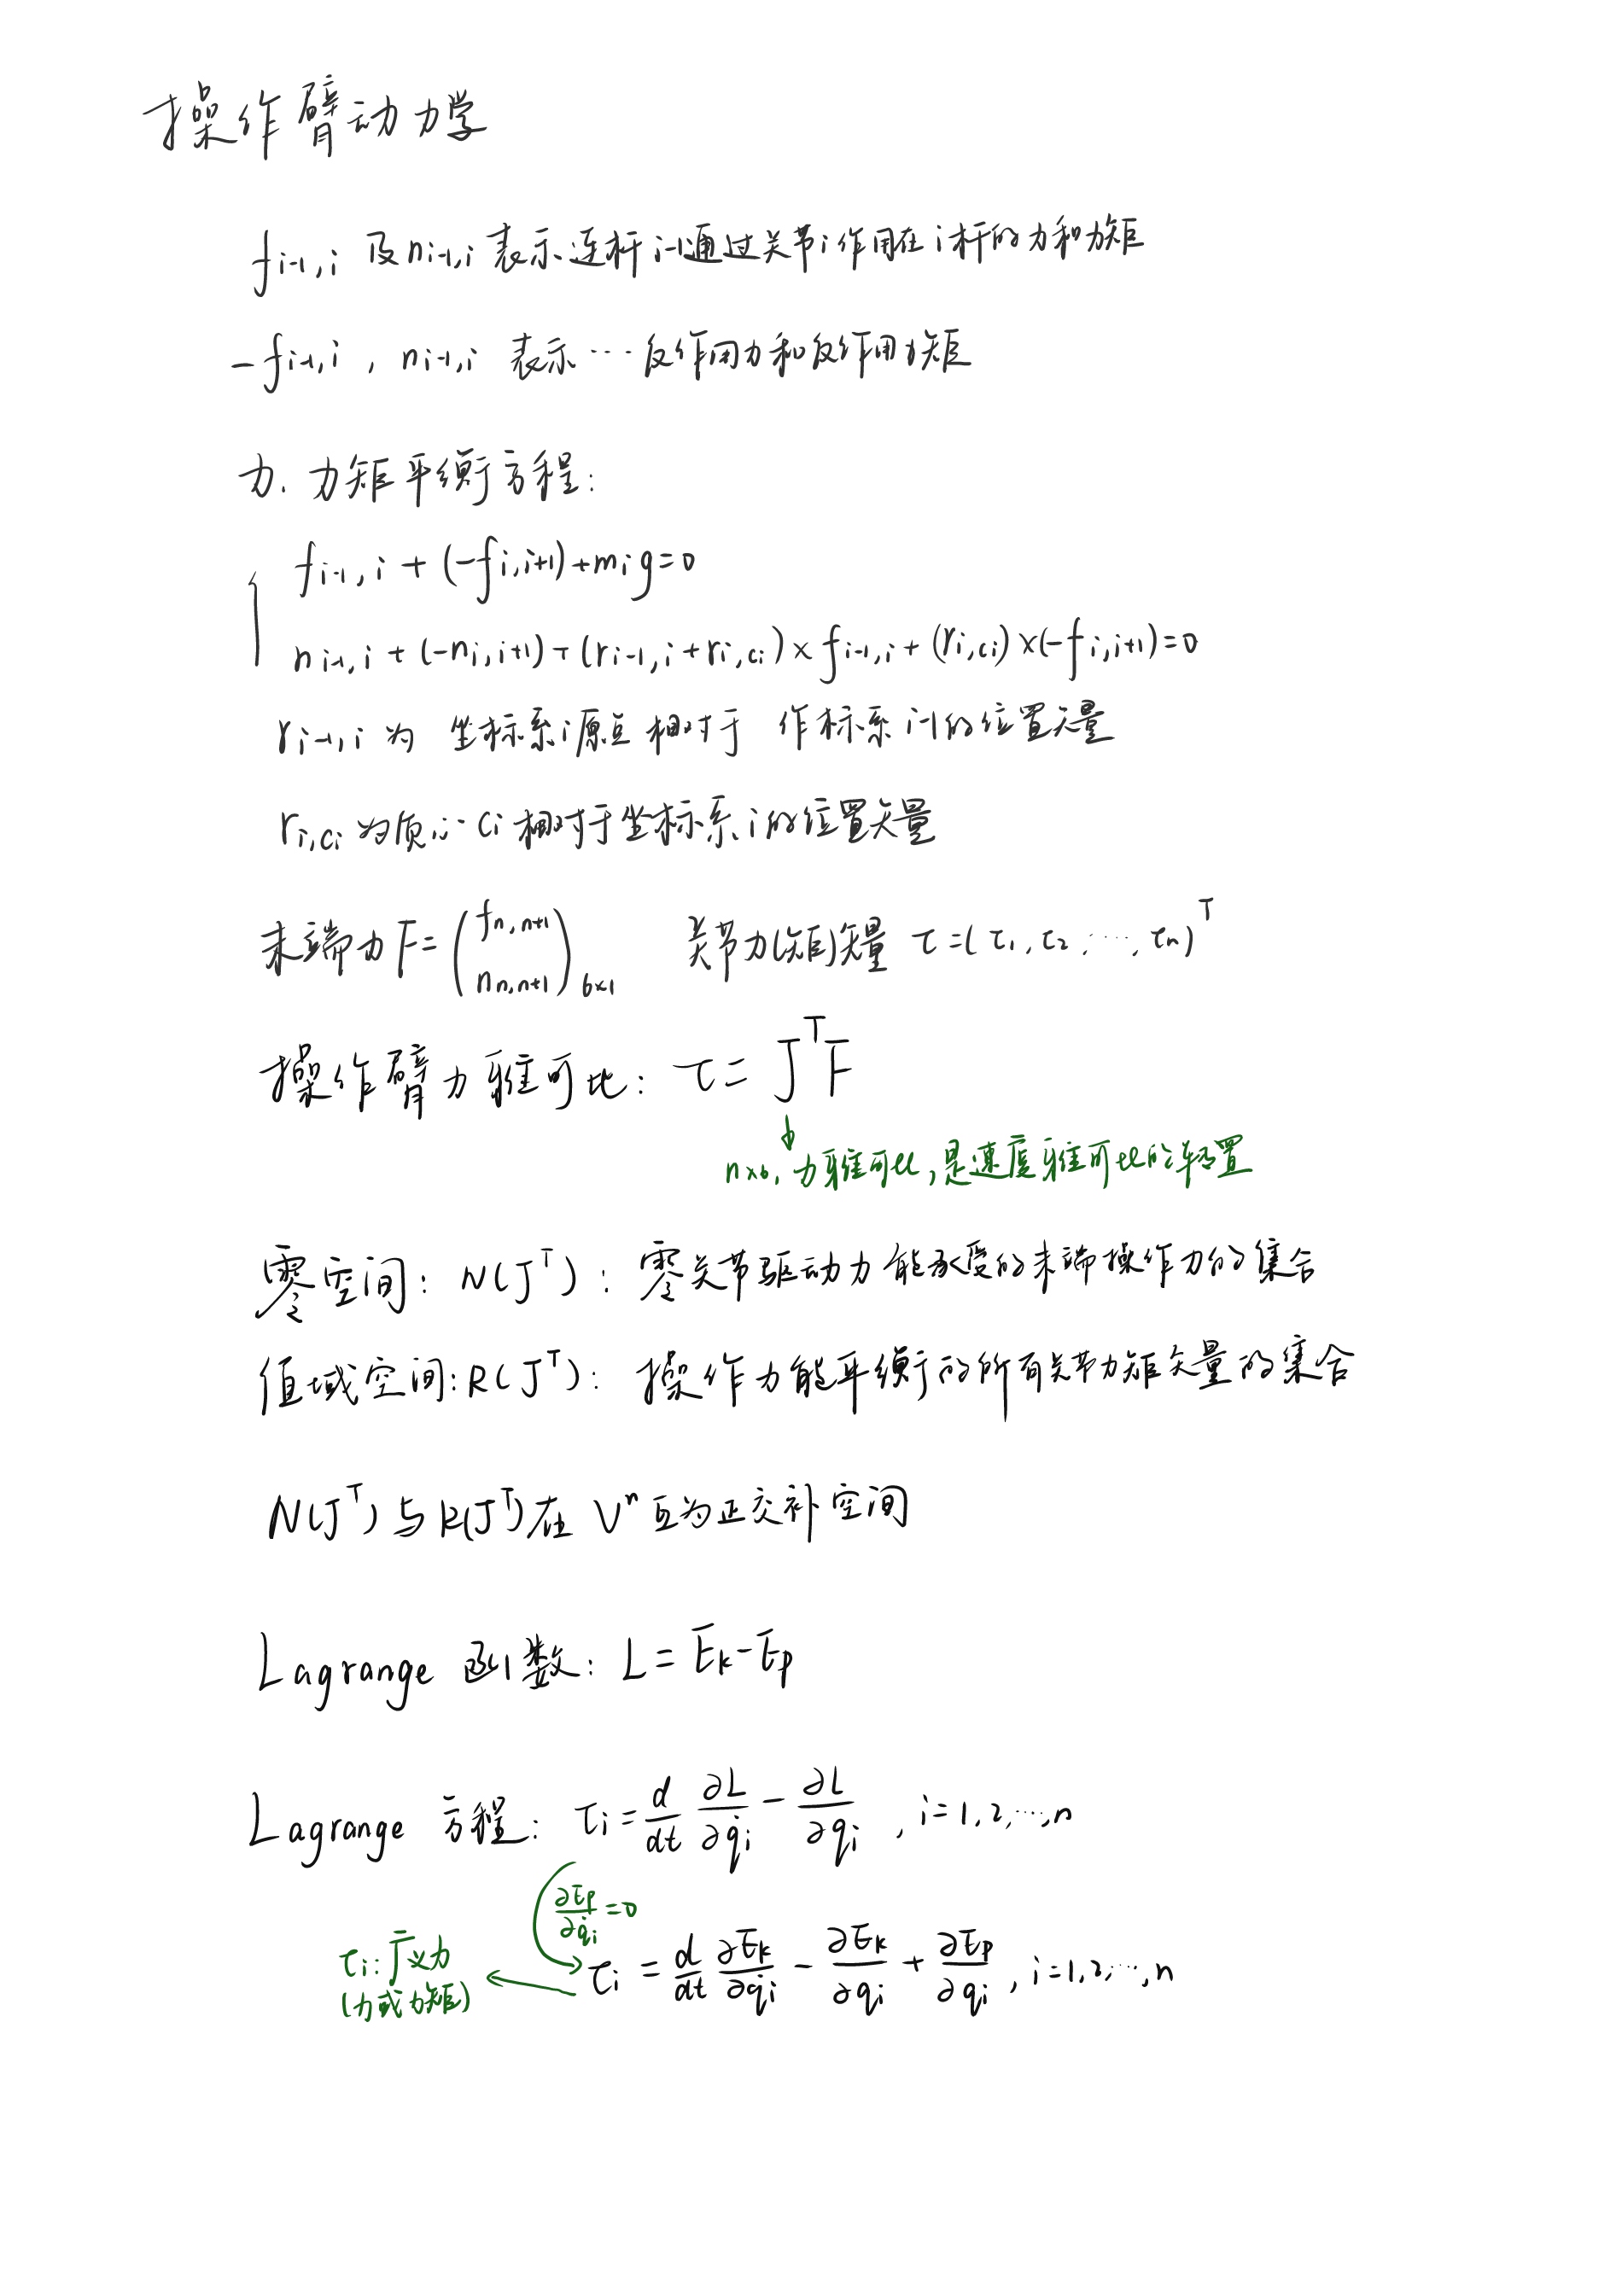 操作臂动力学
f_{i-1,i} 及 n_{i-1,i} 表示连杆 i-1 通过关节 i 作用在 i 杆的力和力矩
-f_{i-1,i} , n_{i-1,i} 表示…反作用力和反作用力矩
力.力矩平衡方程:
f_{i-1,i} + (-f_{i,i+1}) + m_i g = 0
n_{i-1,i} + (-n_{i,i+1}) - (r_{i-1,i} + r_{i,ci}) × f_{i-1,i} + (r_{i,ci}) × (-f_{i,i+1}) = 0
r_{i-1,i} 为 坐标系 i 原点相对于 作标系 i-1 的位置矢量
r_{i,ci} 为质心 ci 相对于坐标系 i 的位置矢量
末端力 F = (f_{n,n+1} n_{n,n+1})_{6×1} 关节力(矩)矢量 τ = (τ_1, τ_2, …, τ_n)^T
操作臂力雅可比: τ = J^T F
n×6, 力雅可比, 是速度雅可比的转置
零空间: N(J^T): 零关节驱动力能承受的末端操作力的集合
值域空间: R(J^T): 操作力能平衡的所有关节力矩矢量的集合
N(J^T) 与 R(J^T) 在 V^n 互为正交补空间
Lagrange 函数: L = E_k - E_p
Lagrange 方程: τ_i = \frac{d}{dt} \frac{∂L}{∂\dot{q}_i} - \frac{∂L}{∂q_i} , i = 1, 2, …, n
\frac{∂E_p}{∂\dot{q}_i} = 0
τ_i: 广义力
(力或力矩)
τ_i = \frac{d}{dt} \frac{∂E_k}{∂\dot{q}_i} - \frac{∂E_k}{∂q_i} + \frac{∂E_p}{∂q_i} , i = 1, 2, …, n